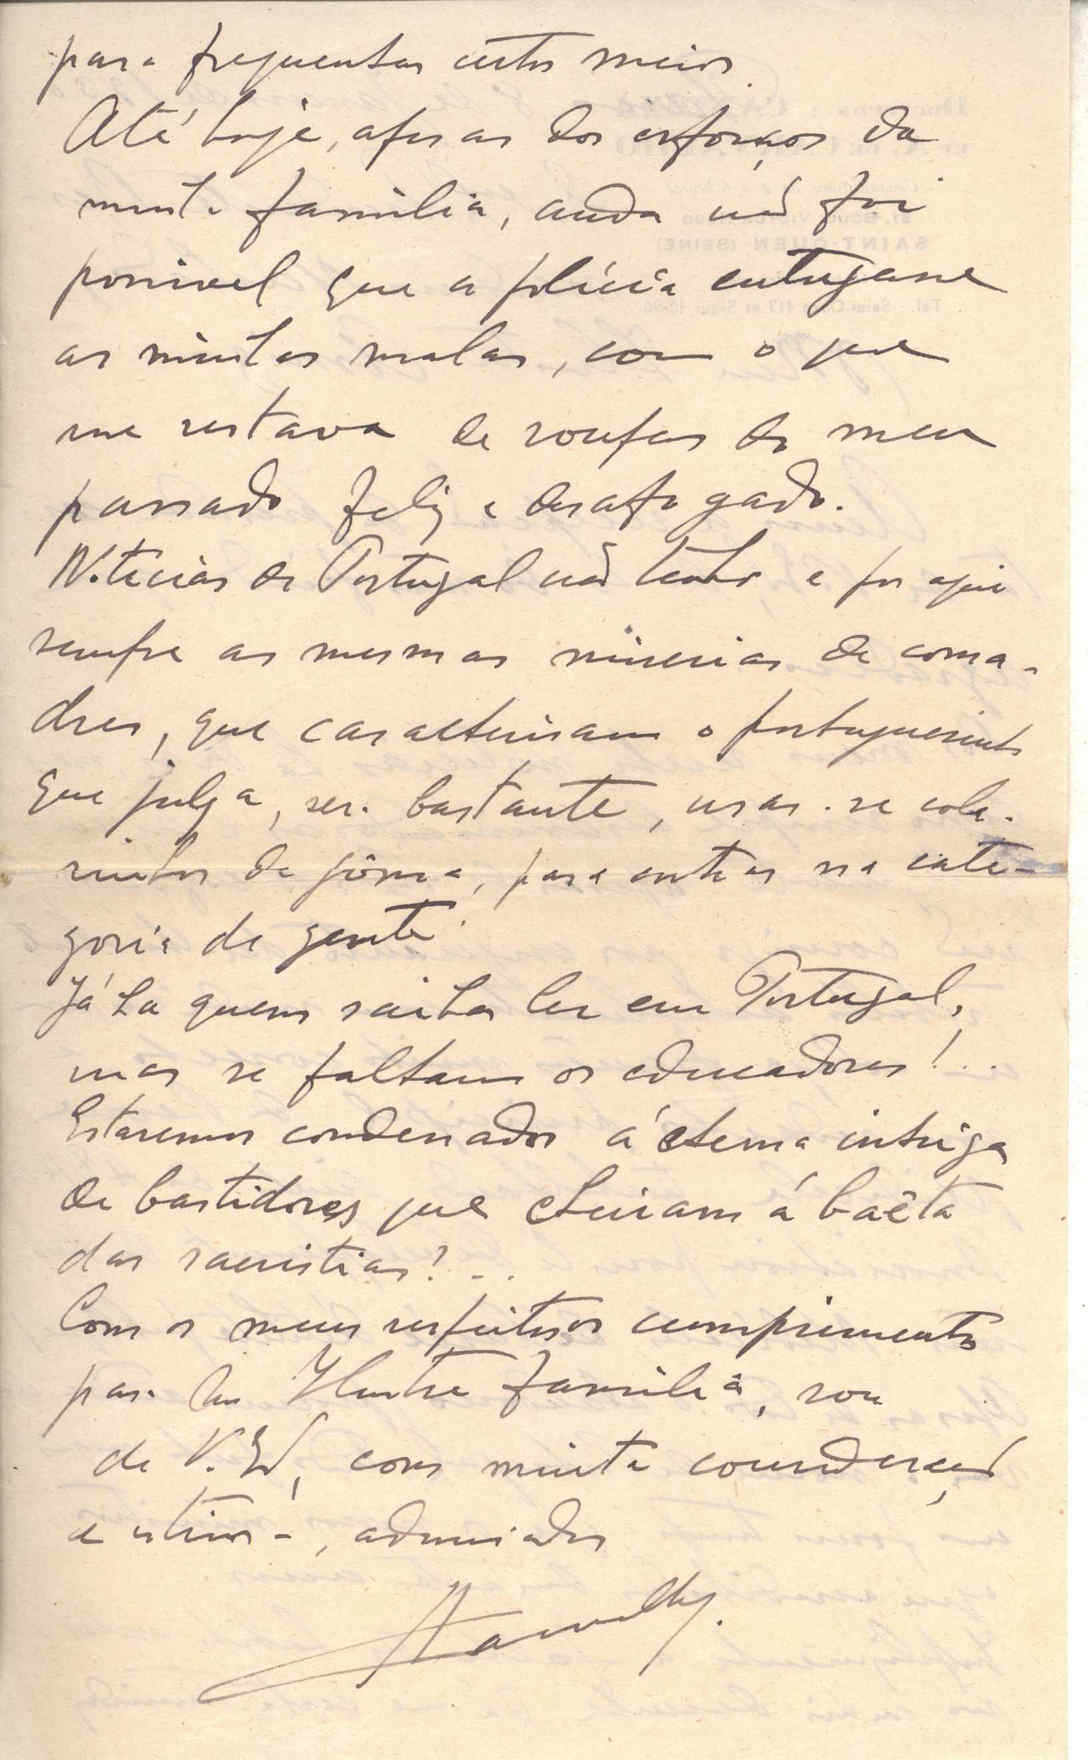 para frequentar certos meios.
Até hoje, apesar dos esforços da
minha família, ainda não foi
possivel que a polícia entregasse
as minhas malas, com o que
me restava de roupas do meu
passado feliz e desafogado.
Noticias de Portugal não tenho e por aqui
sempre as mesmas miserias de coma-
dres, que caracterisam o portuguesinho
que julga, ser bastante, usar-se cola-
rinhos de gôma, para entrar na cate-
goria de gente.
Já ha quem saiba ler em Portugal,
mas se faltam os educadores!..
Estaremos condenados á eterna intriga
de bastidores que cheiram á baêta
das sacristias?...
Com os meus respeitosos cumprimentos
para Sua Ilustre família, sou
de V. Exª, com muita consideração
e estima, admirador